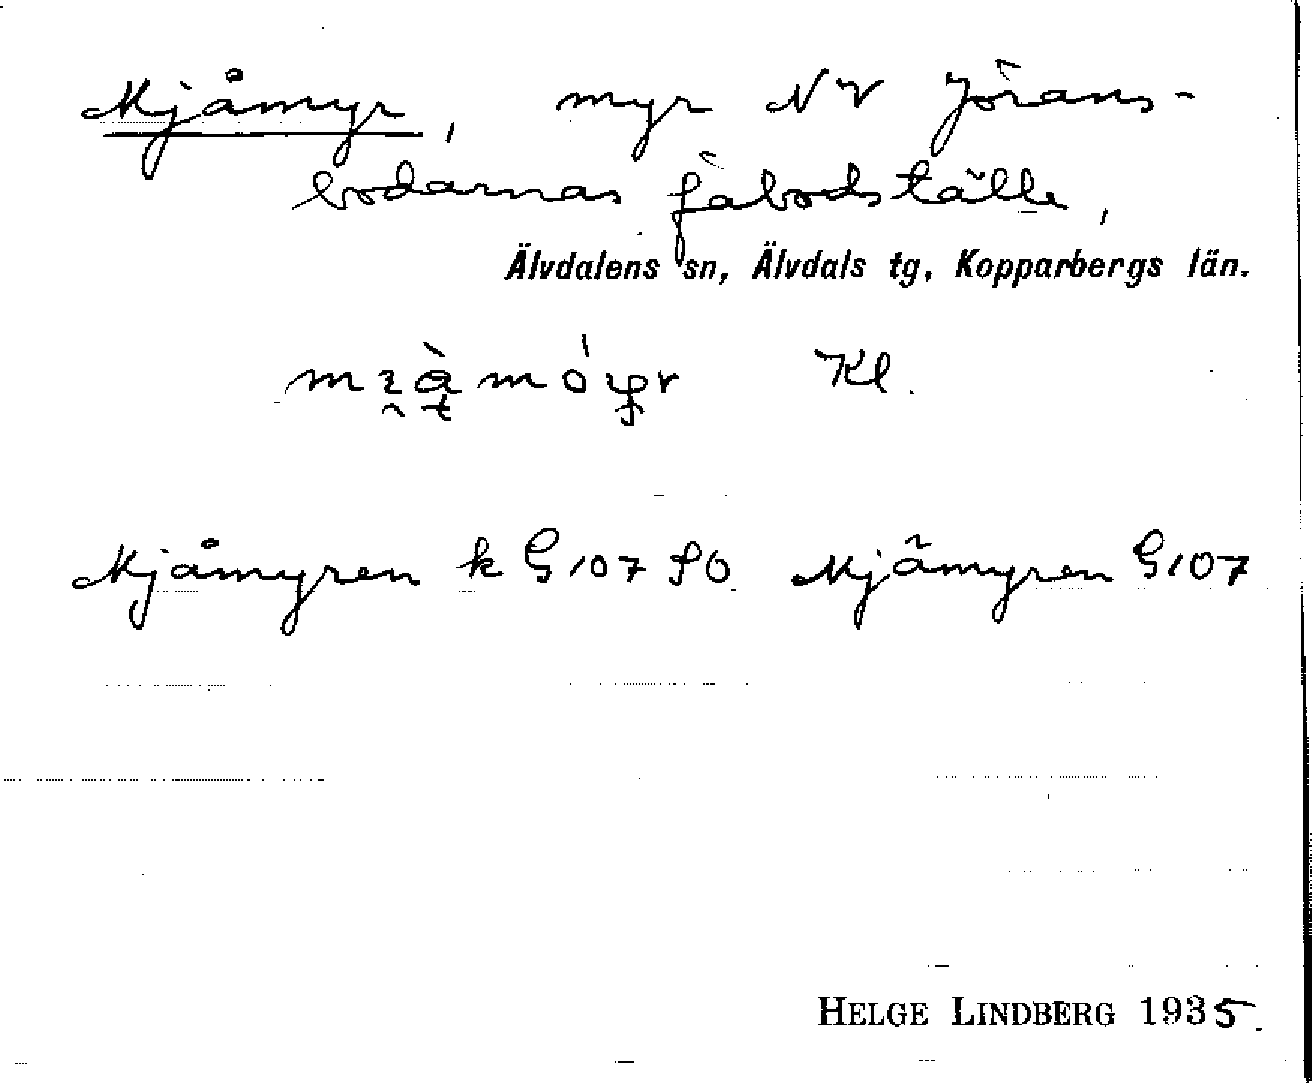 Mjåmyr, myr NV Jörans-
bodarnas fäbodställe,
Älvdalens sn, Älvdals tg, Kopparbergs län.
Kl.
Mjåmyren k G107 SO Mjåmyren G107
HELGE LINDBERG 1935.